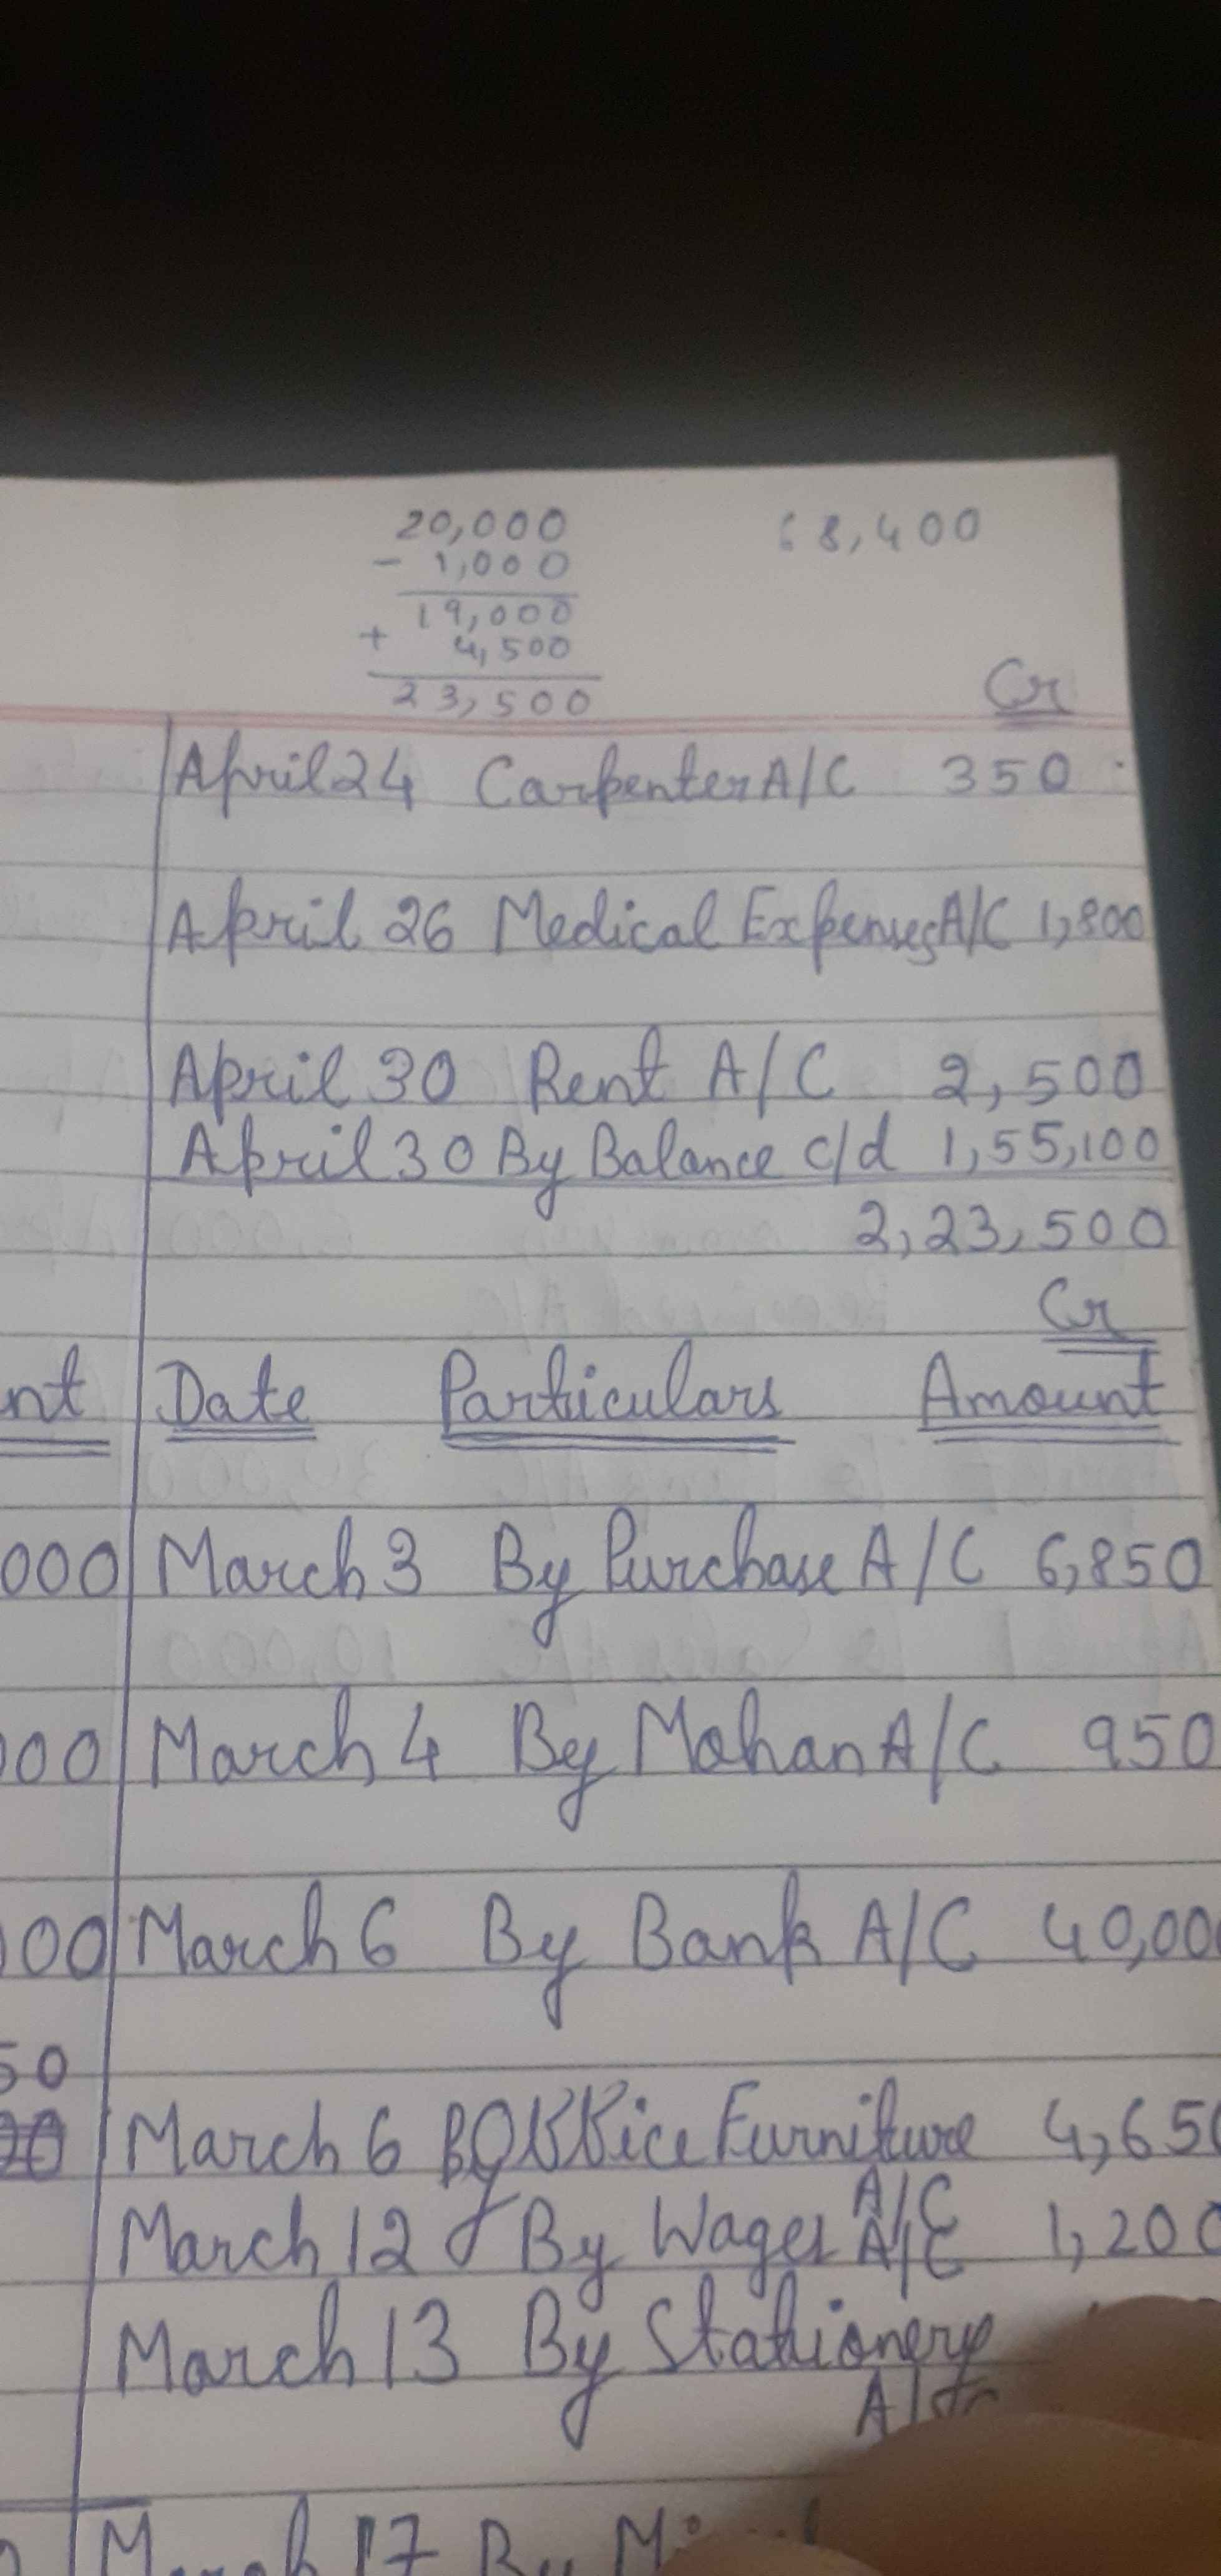 20,000
68,400
- 1,000
19,000
+ 4,500
23,500
Cr
April 24 Carpenter A/C 350
April 26 Medical Expenses A/C 1,800
April 30 Rent A/C 2,500
April 30 By Balance c/d 1,55,100
2,23,500
Cr
nt Date Particulars Amount
000 March 3 By Purchase A/C 6,850
00 March 4 By Mohan A/C 950
00 March 6 By Bank A/C 40,00
50
March 6 By Office Furniture 4,650
A/C
March 12 By Wages A/C 1,200
March 13 By Stationery
A/c
March 17 By